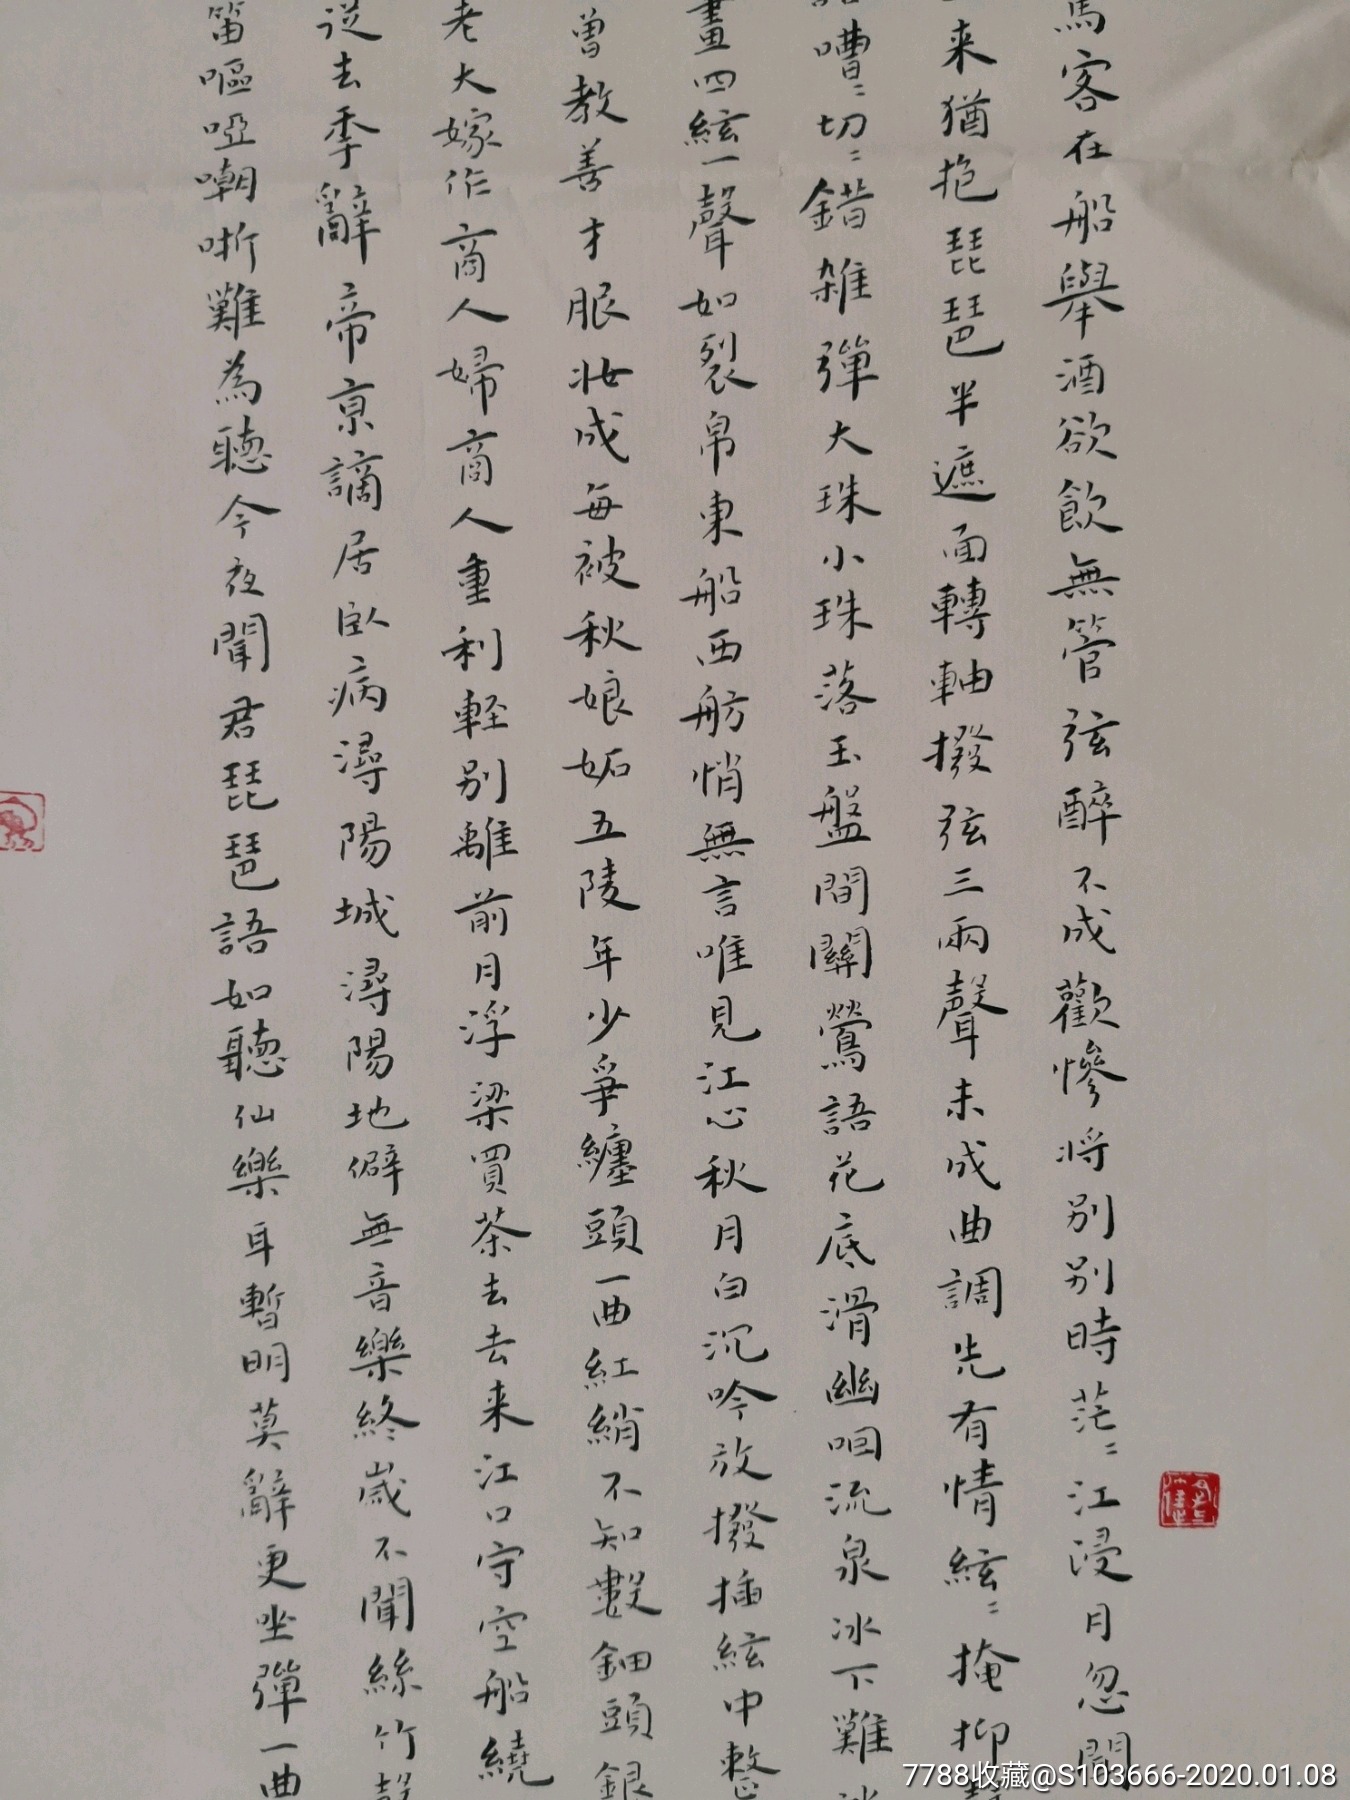 馬客在船舉酒欲飲無管弦醉不成歡慘將別別時茫〻江浸月忽聞
来猶抱琵琶半遮面轉軸撥弦三兩聲未成曲調先有情絃〻掩抑
嘈〻切〻錯雜彈大珠小珠落玉盤間關鶯語花底滑幽咽流泉冰下難
畫四絃一聲如裂帛東船西舫悄無言唯見江心秋月白沉吟放撥插絃中整
曾教善才服妝成每被秋娘妬五陵年少爭纏頭一曲紅綃不知數鈿頭銀
老大嫁作商人婦商人重利輕別離前月浮梁買茶去去来江口守空船繞
従去季辭帝京謫居臥病潯陽城潯陽地僻無音樂終歲不聞絲竹聲
笛嘔啞嘲哳難為聽今夜聞君琵琶語如聽仙樂耳暫明莫辭更坐彈一曲
7788收藏@S103666-2020.01.08